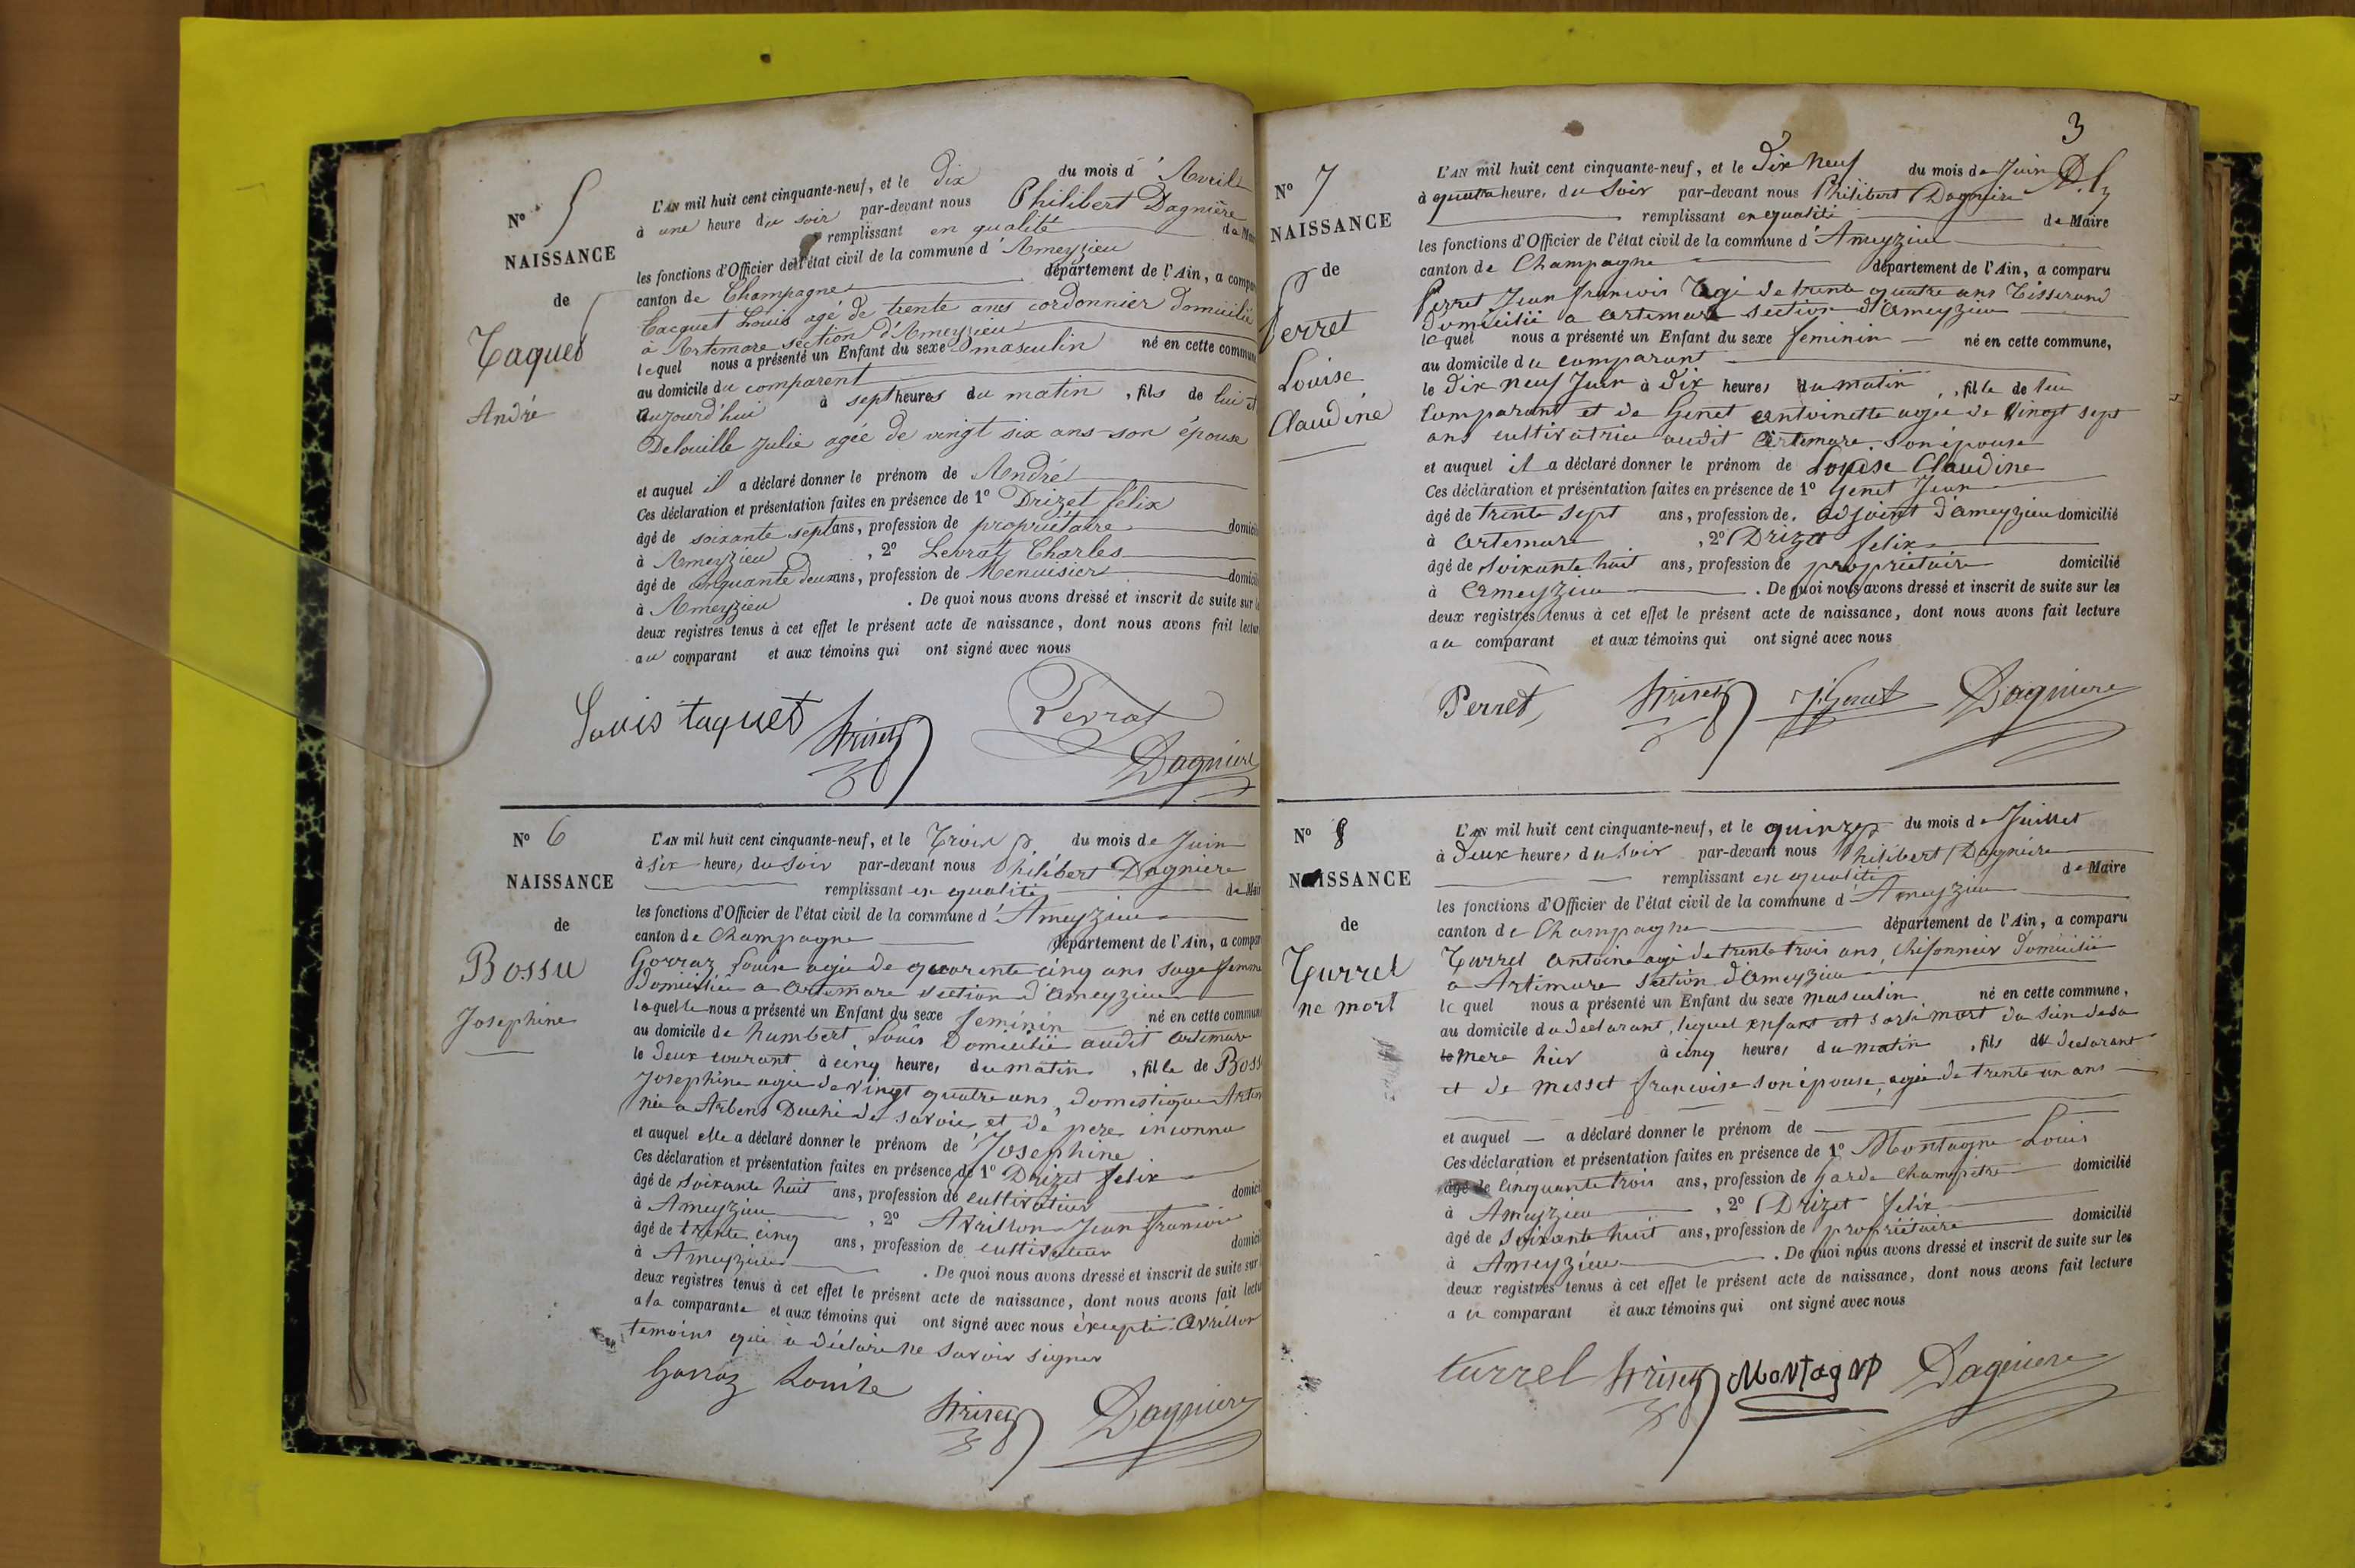 N° 5
NAISSANCE
de
Taquet
André
L'AN mil huit cent cinquante-neuf, et le dix du mois d'Avril
à une heure du soir par-devant nous Philibert Dagnière
remplissant en qualité de Mai
les fonctions d'Officier de l'état civil de la commune d'Ameyzieu
canton de Champagne département de l'Ain, a compar
Tacquet Louis agé de trente ans cordonnier domicilié
à Artemare section d'Ameyzieu
lequel nous a présenté un Enfant du sexe masculin né en cette commune
au domicile du comparent
aujourd'hui à sept heures du matin, fils de lui et
Delouille Julie agée de vingt six ans son épouse
et auquel il a déclaré donner le prénom de André
Ces déclaration et présentation faites en présence de 1° Drizet felix
âgé de soixante sept ans, profession de propriétaire domicil
à Ameyzieu, 2° Levrat Charles
âgé de cinquante deux ans, profession de Menuisier domicil
à Ameyzieu. De quoi nous avons dressé et inscrit de suite sur l
deux registres tenus à cet effet le présent acte de naissance, dont nous avons fait lectur
au comparant et aux témoins qui ont signé avec nous
Louis taquet Drizet Levrat
Dagniere
N° 6
NAISSANCE
de
Bossu
Josephine
L'AN mil huit cent cinquante-neuf, et le Trois du mois de Juin
à six heures du soir par-devant nous Philibert Dagniere
remplissant en qualité de Mai
les fonctions d'Officier de l'état civil de la commune d'Ameyzieu
canton de Champagne département de l'Ain, a compar
Gorraz Louise agée de quarente cinq ans sage femme
Domiciliée a Artemare section d'Ameyzieu
laquelle nous a présenté un Enfant du sexe feminin né en cette commune
au domicile de humbert Louis Domicilié audit Artemare
le deux courant à cinq heures du matin, fille de Boss
Josephine agée de vingt quatre ans, domestique Artem
née a Arbens Duché de savoie et de pere inconnu
et auquel elle a déclaré donner le prénom de Josephine
Ces déclaration et présentation faites en présence de 1° Drizet felix
âgé de soixante huit ans, profession de cultivateur domicil
à Ameyzieu, 2° Avrillon Jean francois
âgé de trente cinq ans, profession de cultivateur domicil
à Ameyzieu. De quoi nous avons dressé et inscrit de suite sur l
deux registres tenus à cet effet le présent acte de naissance, dont nous avons fait lectu
a la comparante et aux témoins qui ont signé avec nous excepté Avrillon
temoins qui a déclaré ne savoir signer
Gorraz Louise
Drizet Dagniere
3
N° 7
NAISSANCE
de
Perret
Louise
Claudine
L'AN mil huit cent cinquante-neuf, et le Dix neuf du mois de Juin
à quatre heures du soir par-devant nous Philibert Dagniere
remplissant en qualité de Maire
les fonctions d'Officier de l'état civil de la commune d'Ameyzieu
canton de Champagne département de l'Ain, a comparu
Perret Jean francois agé de trente quatre ans Tisserand
Domicilié a Artemare section d'Ameyzieu
lequel nous a présenté un Enfant du sexe feminin né en cette commune,
au domicile du comparant
le dix neuf Juin à dix heures du matin, fille de lui
Comparant et de Genet Antoinette agée de Vingt sept
ans cultivatrice audit Artemare son épouse
et auquel il a déclaré donner le prénom de Louise Claudine
Ces déclaration et présentation faites en présence de 1° Genet Jean
âgé de trente sept ans, profession de adjoint d'ameyzieu domicilié
à Artemare, 2° Drizet felix
âgé de soixante huit ans, profession de propriétaire domicilié
à Ameyzieu. De quoi nous avons dressé et inscrit de suite sur les
deux registres tenus à cet effet le présent acte de naissance, dont nous avons fait lecture
au comparant et aux témoins qui ont signé avec nous
Perret Drizet JGenet Dagniere
N° 8
NAISSANCE
de
Turrel
ne mort
L'AN mil huit cent cinquante-neuf, et le quinze du mois de Juillet
à Deux heures du soir par-devant nous Philibert Dagniere
remplissant en qualité de Maire
les fonctions d'Officier de l'état civil de la commune d'Ameyzieu
canton de Champagne département de l'Ain, a comparu
Turrel Antoine agé de trente trois ans, Chifonnier domicilié
a Artemare section d'Ameyzieu
lequel nous a présenté un Enfant du sexe masculin né en cette commune,
au domicile du declarant, lequel enfant est sorti mort du sein de sa
le mere hier à cinq heures du matin, fils du declarant
et de Messet francoise son épouse, agée de trente un ans
et auquel a déclaré donner le prénom de
Ces déclaration et présentation faites en présence de 1° Montagne Louis
âgé de cinquante trois ans, profession de garde Champetre domicilié
à Ameyzieu, 2° Drizet felix
âgé de soixante huit ans, profession de propriétaire domicilié
à Ameyzieu. De quoi nous avons dressé et inscrit de suite sur les
deux registres tenus à cet effet le présent acte de naissance, dont nous avons fait lecture
au comparant et aux témoins qui ont signé avec nous
turrel Drizet Montagne Dagniere